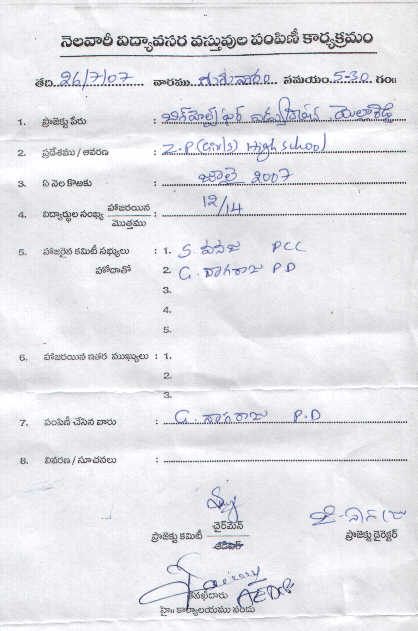 నెలవారీ విద్యావసర వస్తువుల పంపిణీ కార్యక్రమం
తేది. 26/7/07 వారము గురువారం సమయం 5-30 గం॥
1. ప్రాజెక్టు పేరు :
2. ప్రదేశము / ఆవరణ : Z.P (Girls) High School
3. ఏ నెల కొఱకు : జూలై 2007
4. విద్యార్థుల సంఖ్య హాజరయిన / మొత్తము : 12/14
5. హాజరైన కమిటీ సభ్యులు : 1. S. PCC
హోదాతో 2. G. నాగరాజు P D
3.
4.
5.
6. హాజరయిన ఇతర ముఖ్యులు : 1.
2.
3.
7. పంపిణీ చేసిన వారు : G. నాగరాజు P.D
8. వివరణ / సూచనలు :
ప్రాజెక్టు కమిటీ చైర్‌మెన్ / ఆడిటర్
ప్రాజెక్టు డైరెక్టర్
హై॥ కార్యాలయము నందు